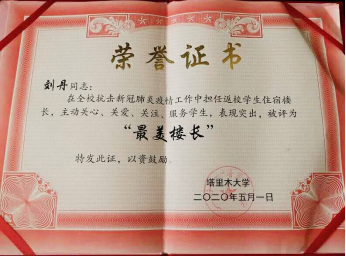 荣誉证书
刘丹同志:
在全校抗击新冠肺炎疫情工作中担任返校学生住宿楼
长,主动关心、关爱、关注、服务学生,表现突出,被评为
“最美楼长”
特发此证,以资鼓励。
塔里木大学
二〇二〇年五月一日